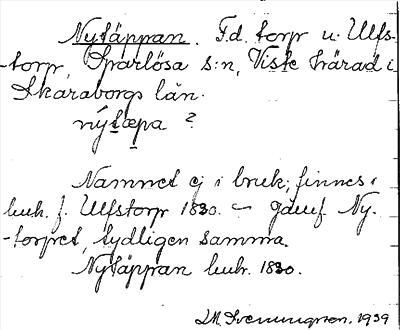 Nytäppan. F.d. torp u. Ulfs-
-torp, Sparlösa s:n, Viste härad i
Skaraborgs län.
nýtæpa ?
Namnet ej i bruk; finnes i
husf. f. Ulfstorp 1830. – jämf. Ny-
-torpet, tydligen samma.
Nytäppan husf. 1830.
Svenungson. 1939